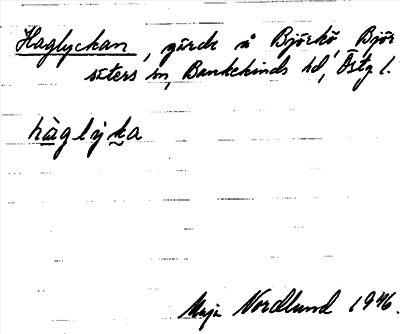 Haglyckan, gärde å Björkö, Björ
säters sn, Bankekinds hd, Östg l.
hàglýka
Maja Nordlund 1946.